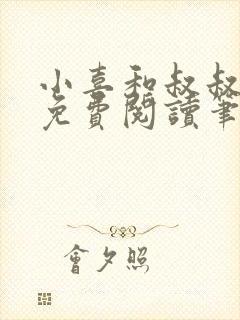 小喜和叔叔
免費閱讀筆
會夕照